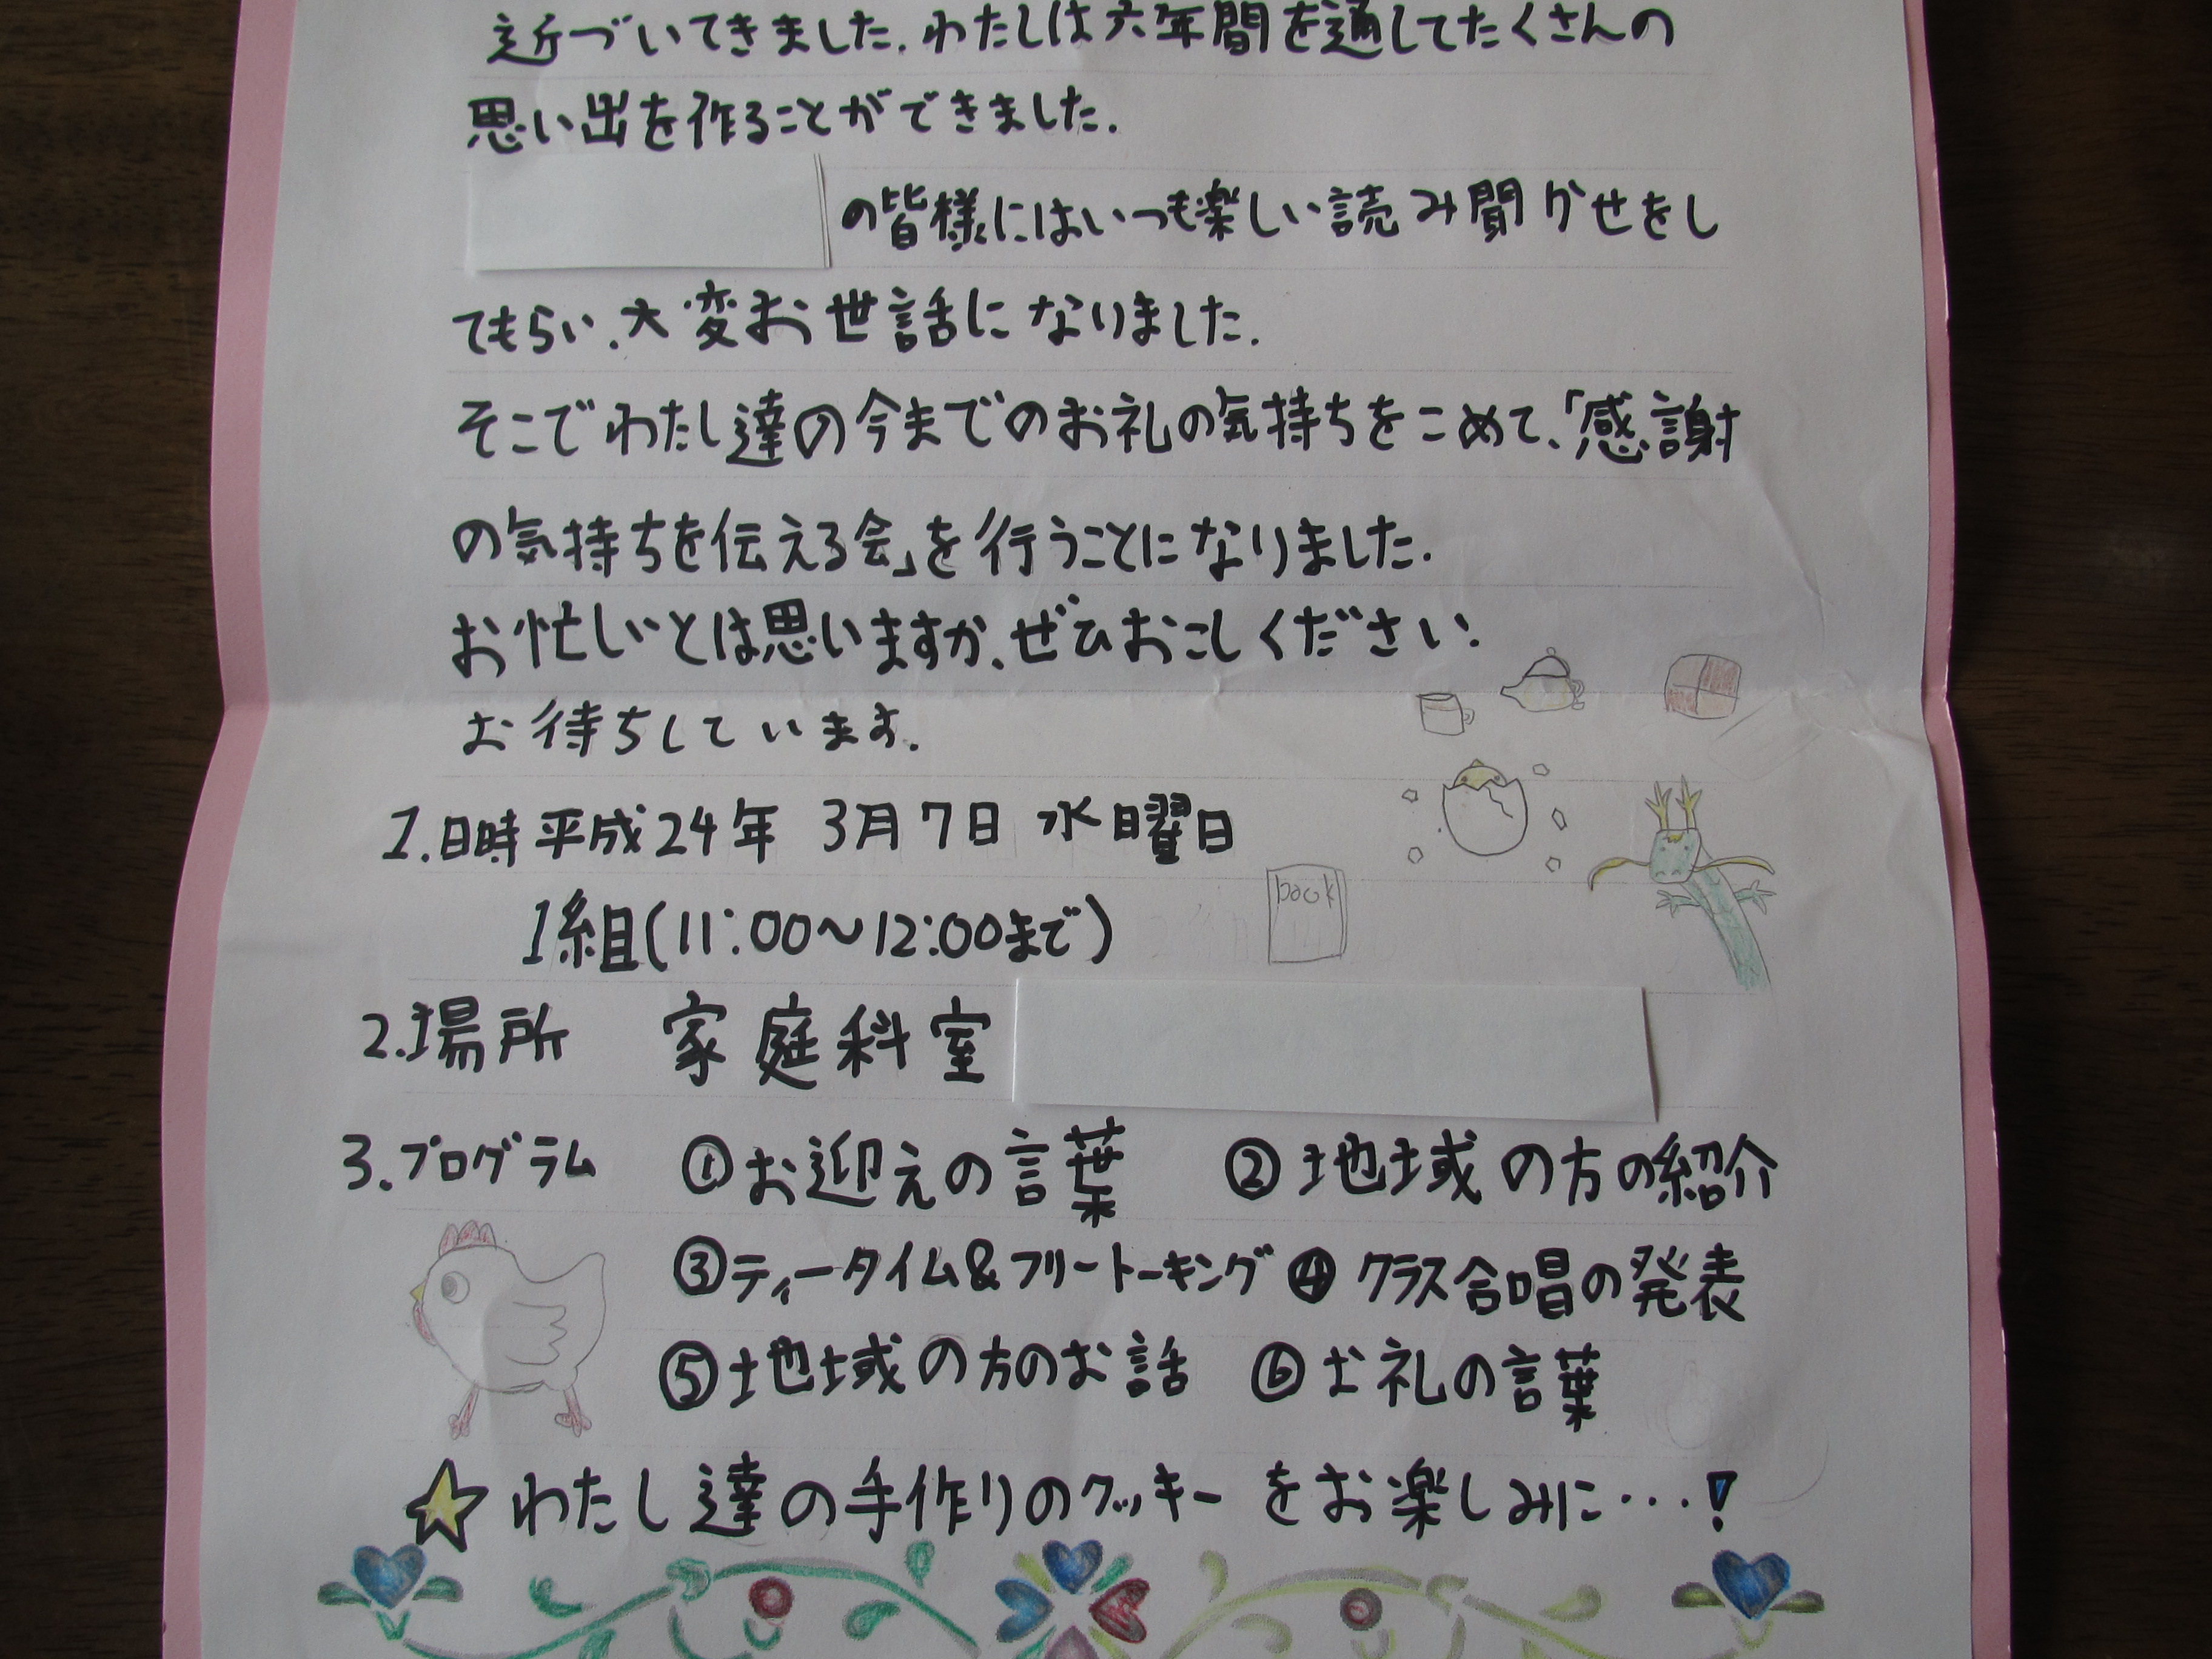 近づいてきました。わたしは六年間を通してたくさんの
思い出を作ることができました。
の皆様にはいつも楽しい読み聞かせをし
てもらい、大変お世話になりました。
そこでわたし達の今までのお礼の気持ちをこめて、「感謝
の気持ちを伝える会」を行うことになりました。
お忙しいとは思いますが、ぜひおこしください。
お待ちしています。
1.日時 平成24年 3月7日 水曜日
1組(11:00～12:00まで)
book
2.場所 家庭科室
3.プログラム ①お迎えの言葉 ②地域の方の紹介
③ティータイム&フリートーキング ④クラス合唱の発表
⑤地域の方のお話 ⑥お礼の言葉
☆わたし達の手作りのクッキーをお楽しみに…!